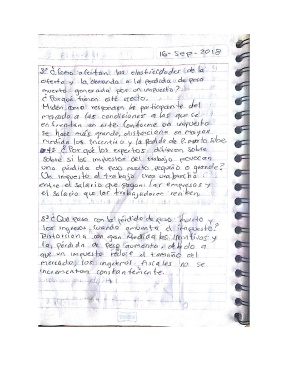 16-Sep-2018
2° ¿Como afectan las elasticidades de la
oferta y la demanda a la perdida de peso
muerto generada por un impuesto?
¿Porque tienen este efecto.
Miden como responden los participante del
mercado a las condiciones a las que se
enfrentan en este conforme un impuesto
se hace mas grande, distorsiona en mayor
medida los incentivo y la perdida de P. muerto
¿Por que los expertos difieren sobre
sobre si los impuestos del trabajo provocan
una pérdida de peso muerto pequeño o grande?
Un impuesto al trabajo crea una brecha
entre el salario que pagan las empresas y
el salario que los trabajadores reciben.
3° ¿Que pasa con la pérdida de peso muerto y
los ingresos cuando aumenta el impuesto?
Distorsiona en gran medida los incentivos y
la pérdida de peso aumenta debido a
que un impuesto reduce el tamaño del
mercado, los fiscales no se
incrementan constantemente.